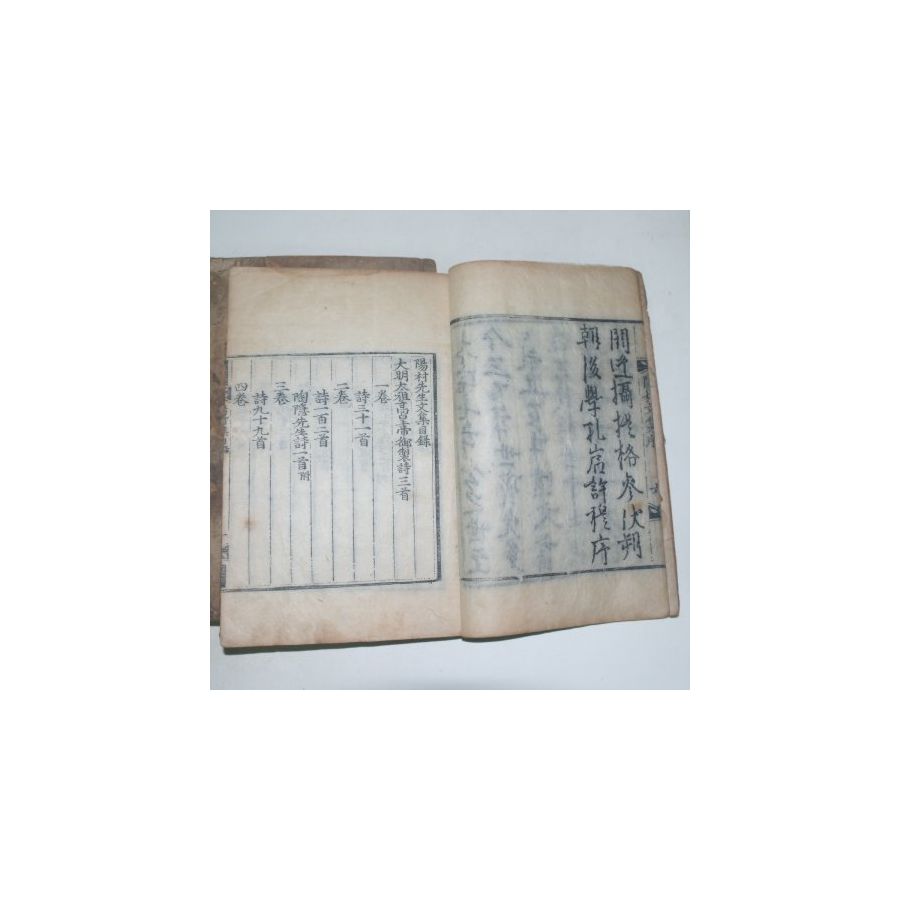 閼逢攝提格季伏朔
朝後學孔岩許穆序
陽村先生文集目錄
大明太祖高皇帝御製詩三首
一卷
詩三十一首
二卷
詩一百二首
陶隱先生詩一首附
三卷
詩九十九首
四卷